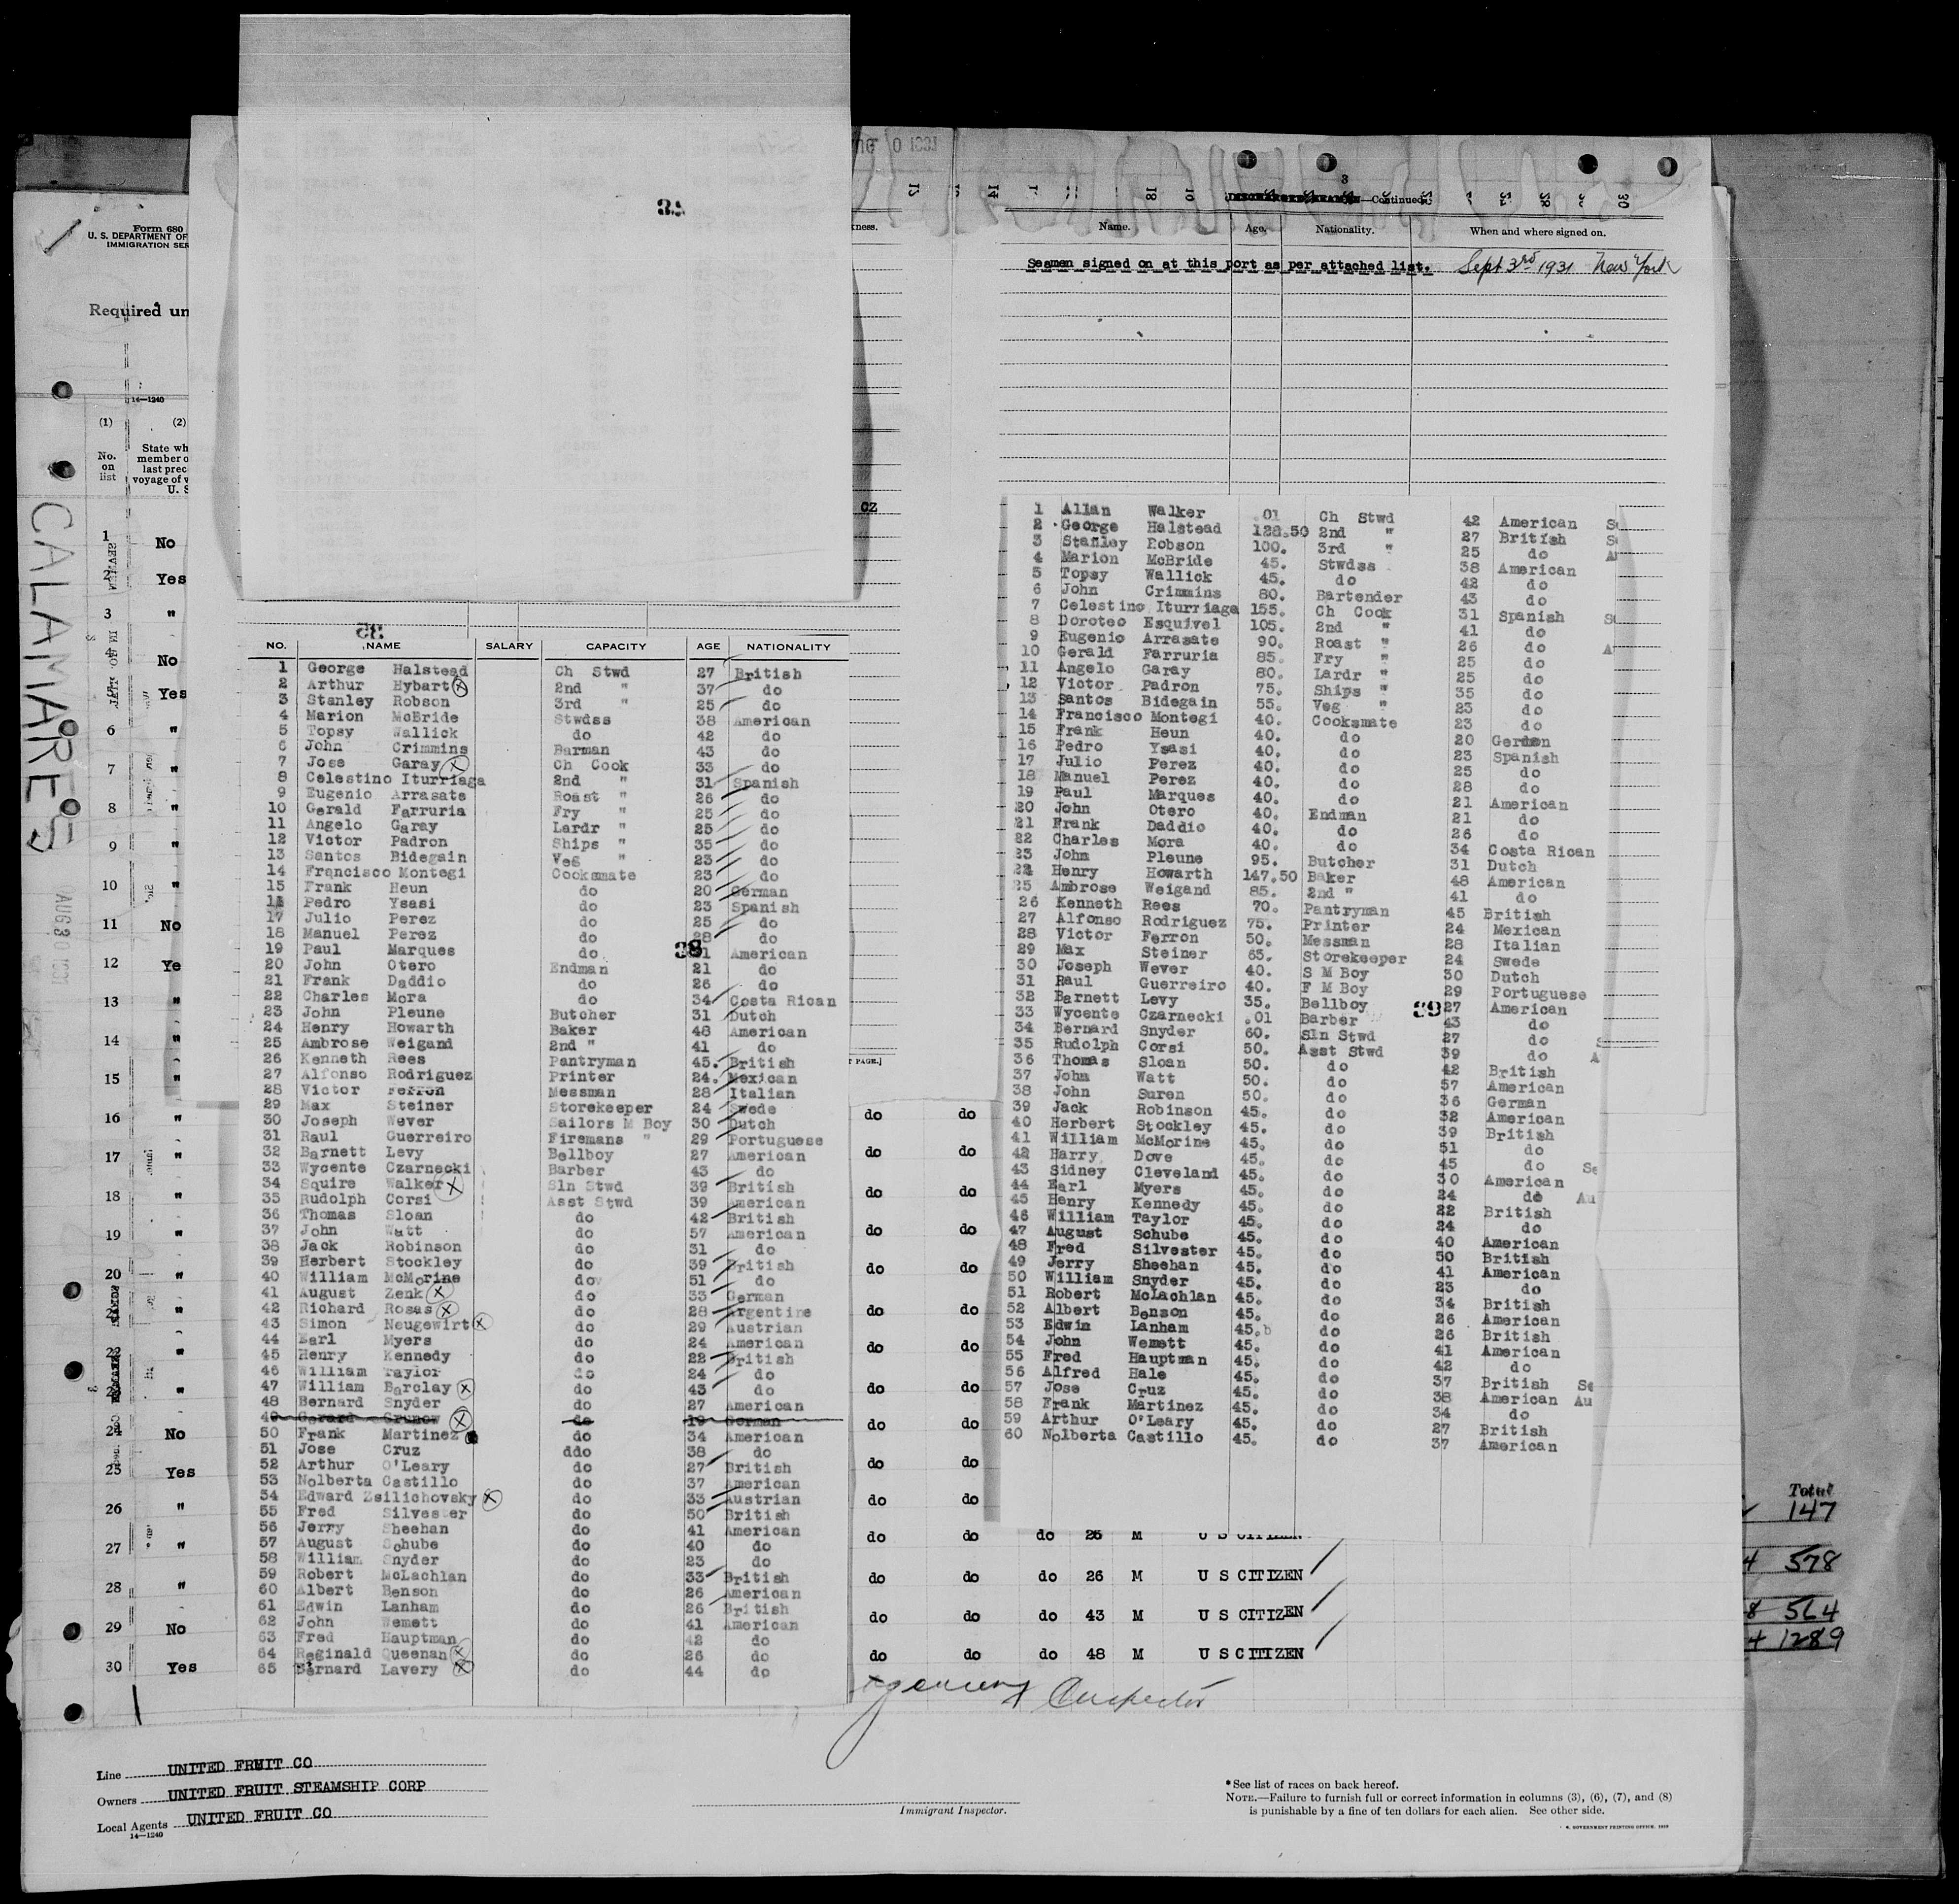 Form 680
U. S. DEPARTMENT OF
IMMIGRATION SER
Required un
14—1240
(1) (2)
No. on list
State wh
member o
last prec
voyage of v
U. S
CALAMARES
1 No
2 Yes
3 "
No
Yes
6 "
7 "
8 "
9 "
10 "
11 No
12 Ye
13 "
14 "
15 "
16 "
17 "
18 "
19 "
20 "
"
"
"
24 No
25 Yes
26 "
27 "
28 "
29 No
30 Yes
NO. NAME SALARY CAPACITY AGE NATIONALITY
1 George Halstead Ch Stwd 27 British
2 Arthur Hybart 2nd " 37 do
3 Stanley Robson 3rd " 25 do
4 Marion McBride Stwdss 38 American
5 Topsy Wallick do 42 do
6 John Crimmins Barman 43 do
7 Jose Garay Ch Cook 33 do
8 Celestino Iturriaga 2nd " 31 Spanish
9 Eugenio Arrasate Roast " 26 do
10 Gerald Farruria Fry " 25 do
11 Angelo Garay Lardr " 25 do
12 Victor Padron Ships " 35 do
13 Santos Bidegain Veg " 23 do
14 Francisco Montegi Cooksmate 23 do
15 Frank Heun do 20 German
Pedro Ysasi do 23 Spanish
17 Julio Perez do 25 do
18 Manuel Perez do 28 do
19 Paul Marques do 38 American
20 John Otero Endman 21 do
21 Frank Daddio do 26 do
22 Charles Mora do 34 Costa Rican
23 John Pleune Butcher 31 Dutch
24 Henry Howarth Baker 48 American
25 Ambrose Weigand 2nd " 41 do
26 Kenneth Rees Pantryman 45. British
27 Alfonso Rodriguez Printer 24. Mexican
28 Victor Ferron Messman 28 Italian
29 Max Steiner Storekeeper 24 Swede
30 Joseph Wever Sailors M Boy 30 Dutch
31 Raul Guerreiro Firemans " 29 Portuguese
32 Barnett Levy Bellboy 27 American
33 Wycente Czarnecki Barber 43 do
34 Squire Walker Sln Stwd 39 British
35 Rudolph Corsi Asst Stwd 39 American
36 Thomas Sloan do 42 British
37 John Watt do 57 American
38 Jack Robinson do 31 do
39 Herbert Stockley do 39 British
40 William McMorine do 51 do
41 August Zenk do 33 German
42 Richard Rosas do 28 Argentine
43 Simon Neugewirt do 29 Austrian
44 Earl Myers do 24 American
45 Henry Kennedy do 22 British
46 William Taylor do 24 do
47 William Barclay do 43 do
48 Bernard Snyder do 27 American
49 Gerard Grunow do 19 German
50 Frank Martinez do 34 American
51 Jose Cruz ddo 38 do
52 Arthur O'Leary do 27 British
53 Nolberta Castillo do 37 American
54 Edward Zsilichovsky do 33 Austrian
55 Fred Silvester do 50 British
56 Jerry Sheehan do 41 American
57 August Schube do 40 do
58 William Snyder do 23 do
59 Robert McLachlan do 33 British
60 Albert Benson do 26 American
61 Edwin Lanham do 26 British
62 John Wemett do 41 American
63 Fred Hauptman do 42 do
64 Reginald Queenan do 26 do
65 Bernard Lavery do 44 do
3
—Continued
Name. Age. Nationality. When and where signed on.
Seamen signed on at this port as per attached list. Sept 3rd 1931 New York
1 Allan Walker .01 Ch Stwd 42 American
2 George Halstead 128.50 2nd " 27 British
3 Stanley Robson 100. 3rd " 25 do
4 Marion McBride 45. Stwdss 38 American
5 Topsy Wallick 45. do 42 do
6 John Crimmins 80. Bartender 43 do
7 Celestino Iturriaga 155. Ch Cook 31 Spanish
8 Doroteo Esquivel 105. 2nd " 41 do
9 Eugenio Arrasate 90. Roast " 26 do
10 Gerald Farruria 85. Fry " 25 do
11 Angelo Garay 80. Lardr " 25 do
12 Victor Padron 75. Ships " 35 do
13 Santos Bidegain 55. Veg " 23 do
14 Francisco Montegi 40. Cooksmate 23 do
15 Frank Heun 40. do 20 German
16 Pedro Ysasi 40. do 23 Spanish
17 Julio Perez 40. do 25 do
18 Manuel Perez 40. do 28 do
19 Paul Marques 40. do 21 American
20 John Otero 40. Endman 21 do
21 Frank Daddio 40. do 26 do
22 Charles Mora 40. do 34 Costa Rican
23 John Pleune 95. Butcher 31 Dutch
24 Henry Howarth 147.50 Baker 48 American
25 Ambrose Weigand 85. 2nd " 41 do
26 Kenneth Rees 70. Pantryman 45 British
27 Alfonso Rodriguez 75. Printer 24 Mexican
28 Victor Ferron 50. Messman 28 Italian
29 Max Steiner 65. Storekeeper 24 Swede
30 Joseph Wever 40. S M Boy 30 Dutch
31 Raul Guerreiro 40. F M Boy 29 Portuguese
32 Barnett Levy 35. Bellboy 39 27 American
33 Wycente Czarnecki .01 Barber 43 do
34 Bernard Snyder 60. Sln Stwd 27 do
35 Rudolph Corsi 50. Asst Stwd 39 do
36 Thomas Sloan 50. do 42 British
37 John Watt 50. do 57 American
38 John Suren 50. do 36 German
39 Jack Robinson 45. do 32 American
40 Herbert Stockley 45. do 39 British
41 William McMorine 45. do 51 do
42 Harry Dove 45. do 45 do
43 Sidney Cleveland 45. do 30 American
44 Earl Myers 45. do 24 do
45 Henry Kennedy 45. do 22 British
46 William Taylor 45. do 24 do
47 August Schube 45. do 40 American
48 Fred Silvester 45. do 50 British
49 Jerry Sheehan 45. do 41 American
50 William Snyder 45. do 23 do
51 Robert McLachlan 45. do 34 British
52 Albert Benson 45. do 26 American
53 Edwin Lanham 45. do 26 British
54 John Wemett 45. do 41 American
55 Fred Hauptman 45. do 42 do
56 Alfred Hale 45. do 37 British
57 Jose Cruz 45. do 38 American
58 Frank Martinez 45. do 34 do
59 Arthur O'Leary 45. do 27 British
60 Nolberta Castillo 45. do 37 American
do do
do do
do do
do do
do do
do do
do do
do do
do do
do do
do do
do do do 26 M U S CITIZEN
do do do 26 M U S CITIZEN
do do do 43 M U S CITIZEN
do do do 48 M U S CITIZEN
Inspector
Total
147
578
564
1289
Line UNITED FRUIT CO
Owners UNITED FRUIT STEAMSHIP CORP
Local Agents UNITED FRUIT CO
14—1240
Immigrant Inspector.
* See list of races on back hereof.
NOTE.—Failure to furnish full or correct information in columns (3), (6), (7), and (8)
is punishable by a fine of ten dollars for each alien. See other side.